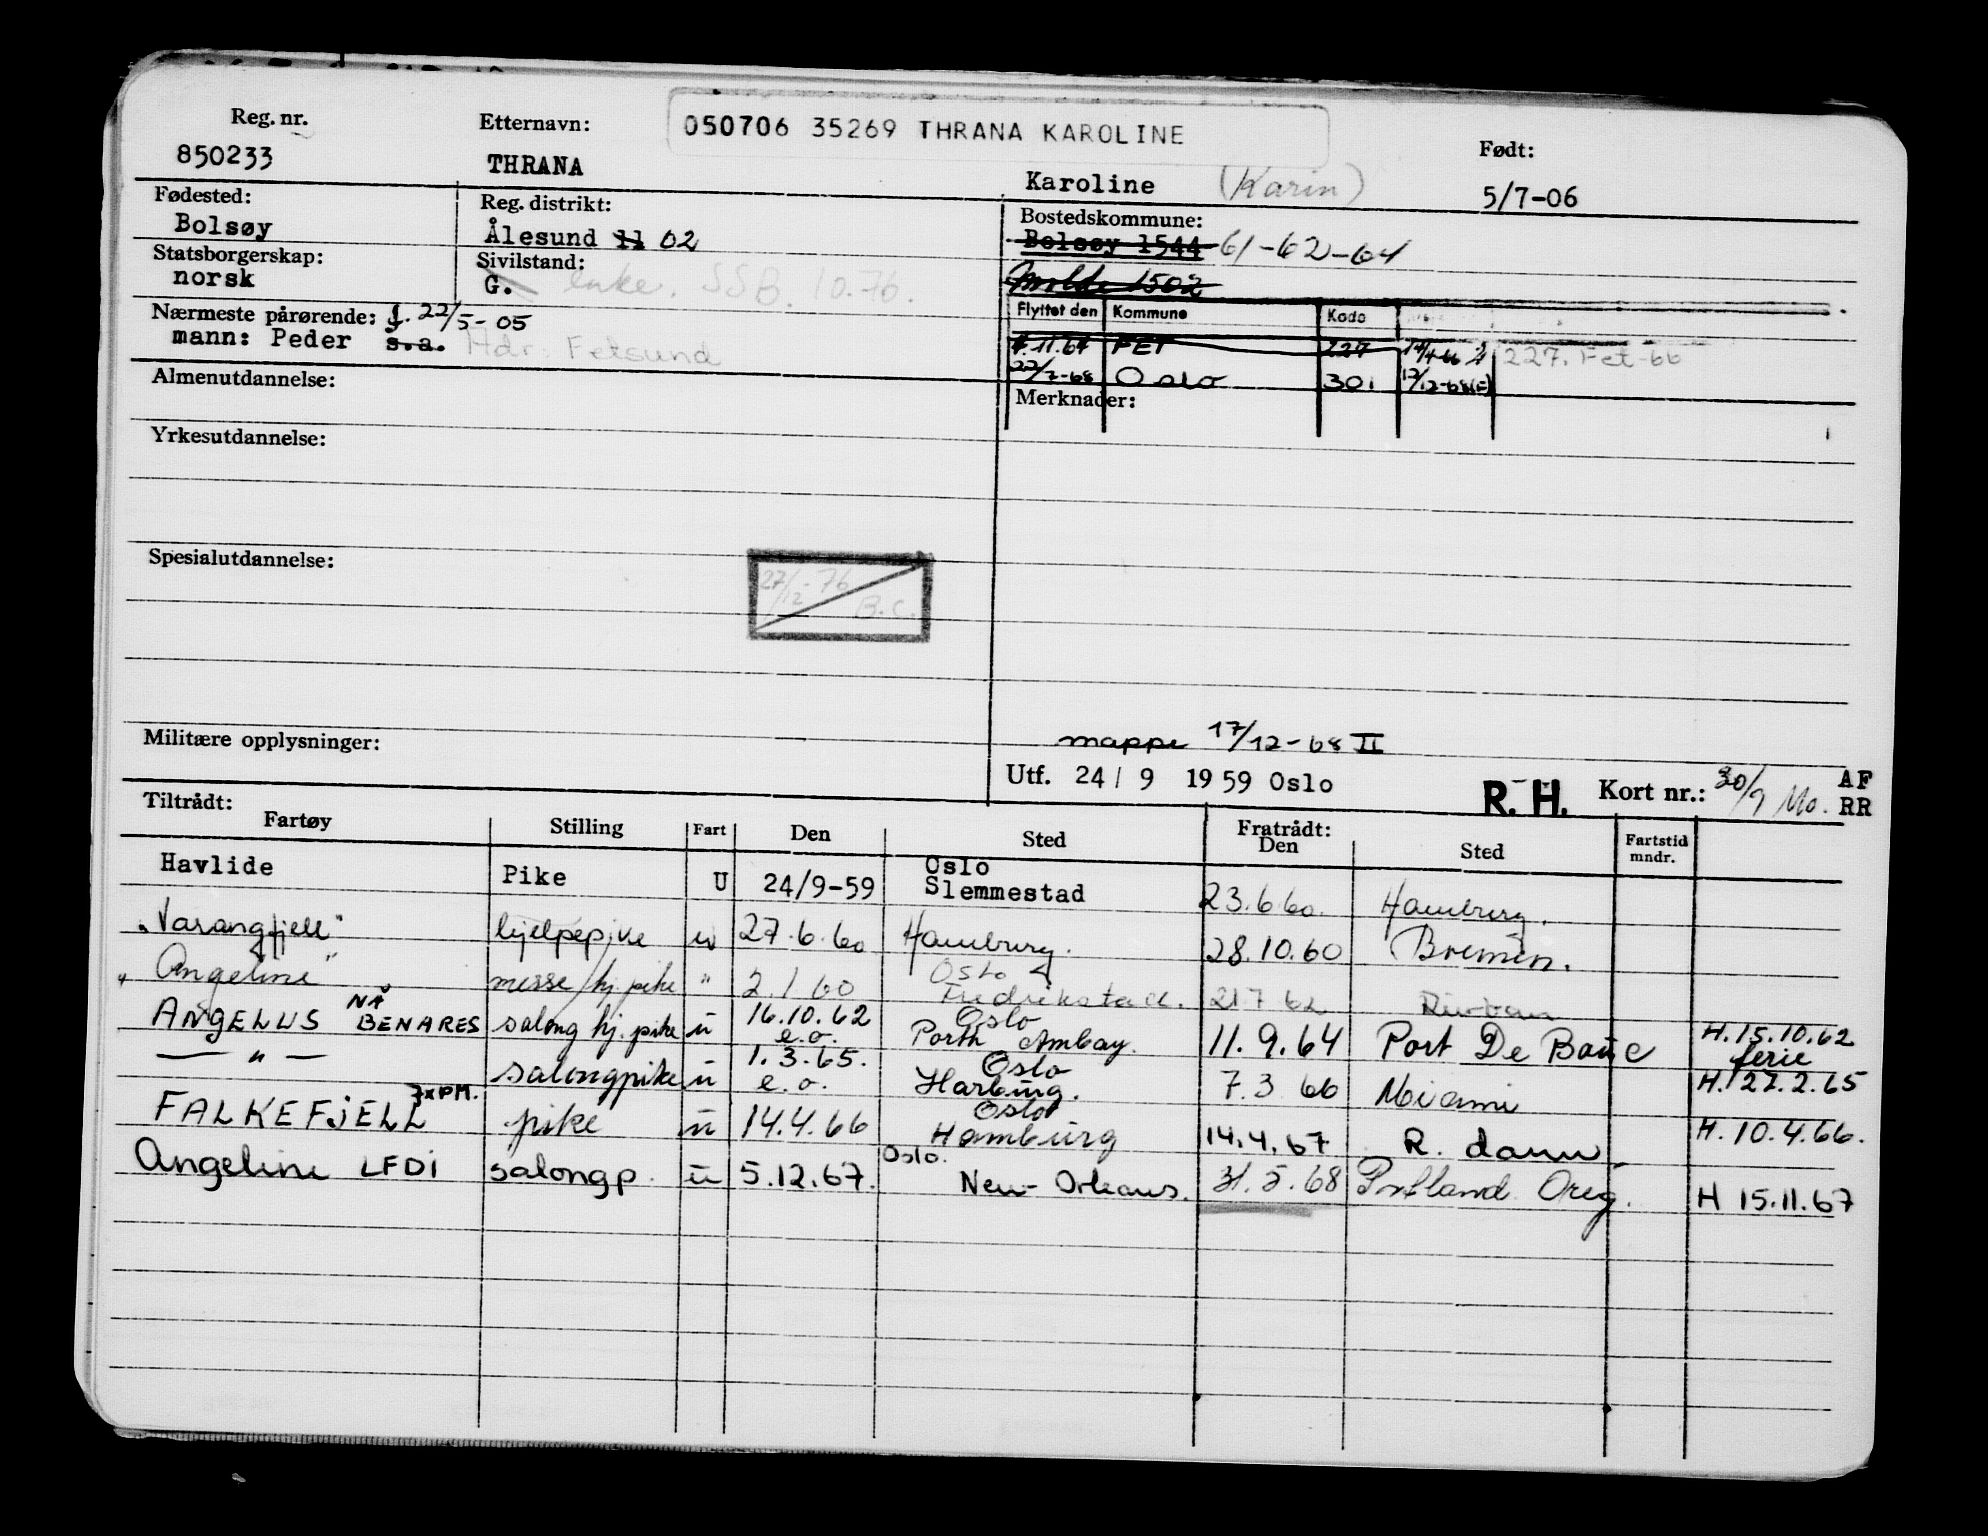 050706 35269 THRANA KAROLINE
Reg. nr. Etternavn: Født:
850233 THRANA Karoline (Karin) 5/7-06
Fødested: Reg. distrikt: Bostedskommune:
Bolsøy Ålesund 11 02 Bolsøy 1544 61-62-64
Statsborgerskap: Sivilstand: Molde 1502
norsk G. enke. SSB. 10.76.
Nærmeste pårørende: f. 22/5-05 Flyttet den Kommune Kode
mann: Peder s.a. Adr: Fetsund .11.64 FET 227 227. Fet-66
22/7-68 Oslo 301 12/12-68
Almenutdannelse: Merknader:
Yrkesutdannelse:
Spesialutdannelse:
27/12-76 B.C.
Militære opplysninger: mappe 17/12-68 II
Utf. 24/9 1959 Oslo R. H. Kort nr.: 30/9 Mo. AF RR
Tiltrådt: Fratrådt:
Fartøy Stilling Fart Den Sted Den Sted Fartstid mndr.
Havlide Pike U 24/9-59 Oslo Slemmestad 23.6.60. Hamburg.
"Varangfjell" hjelpepike u 27.6.60 Hamburg. 28.10.60 Bremen.
"Angeline" messe/hj.pike " 2.1.60 Oslo Fredrikstad. 21.7.62 Durban
ANGELUS NÅ BENARES salong hj.pike u 16.10.62 e.o. Oslo Porth Ambay. 11.9.64 Port De Bouc H.15.10.62 ferie
— " — salongpike u 1.3.65. e.o. Oslo Harburg. 7.3 66 Miami H. 27.2.65
FALKEFJELL 7xPM. pike u 14.4.66 Oslo Hamburg 14.4.67 R. dam H. 10.4.66.
Angeline LFDI salongp. u 5.12.67. Oslo. New-Orleans. 31.5.68 Portland Oreg. H 15.11.67